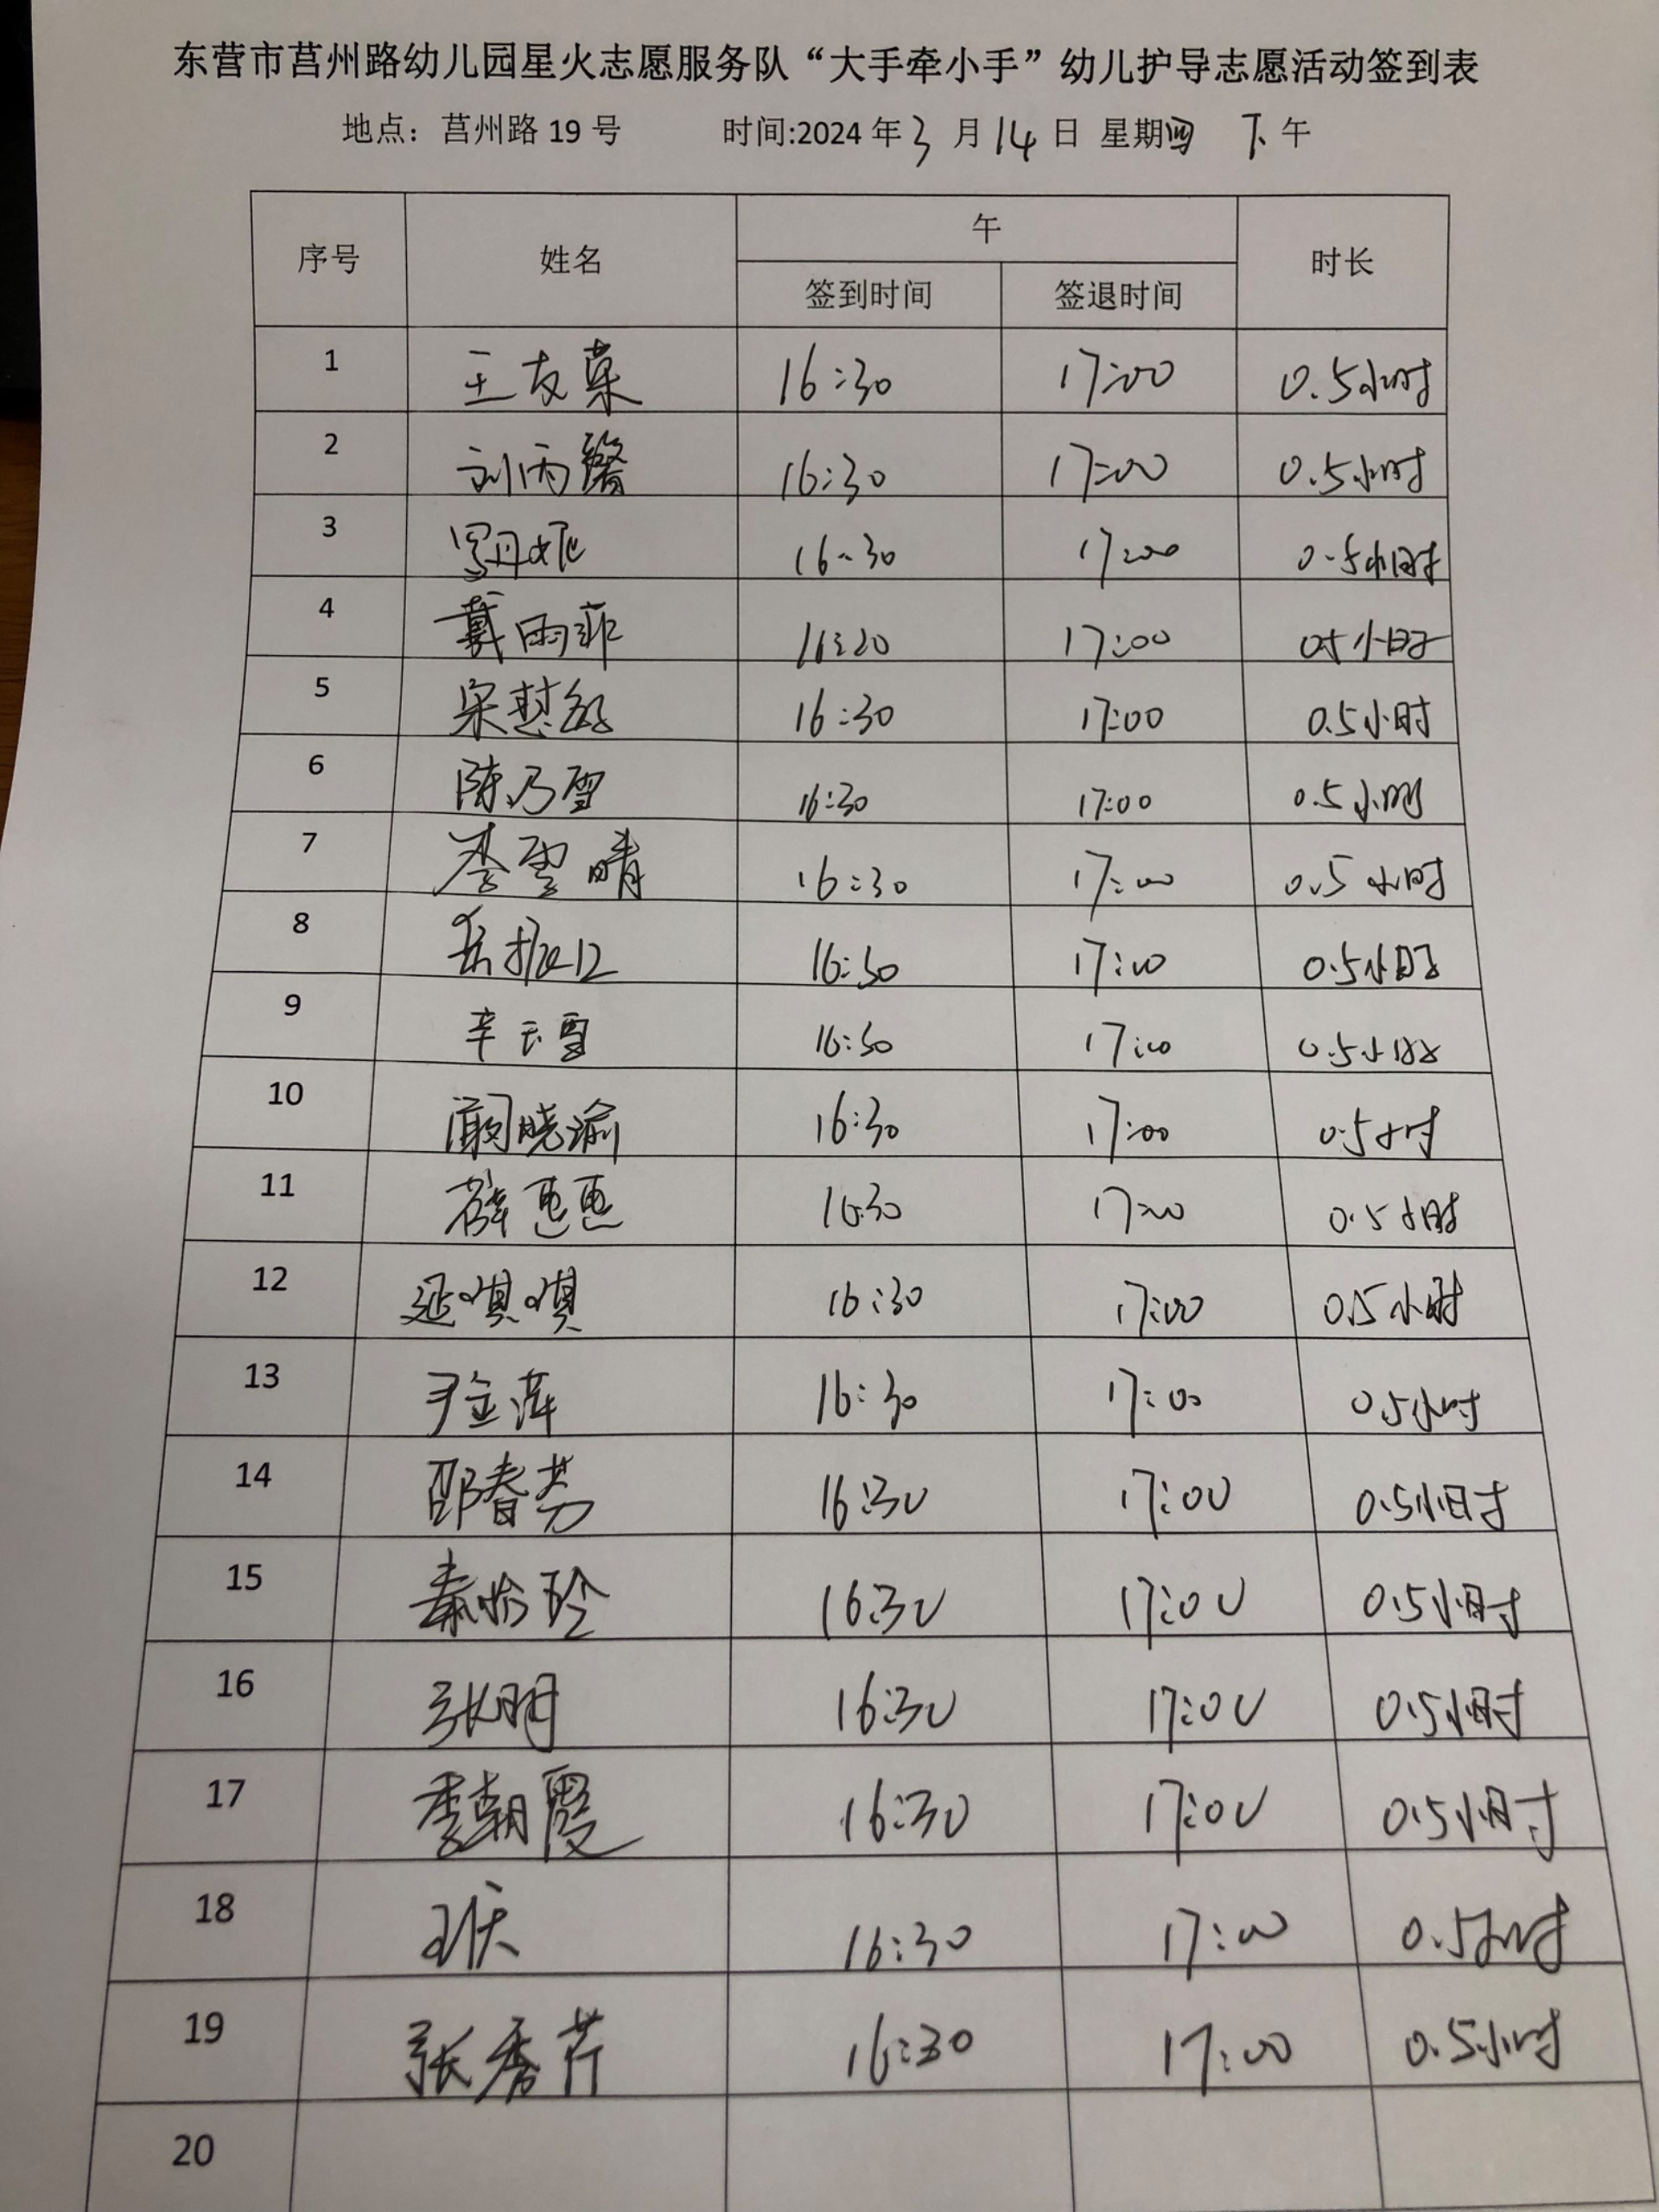 东营市莒州路幼儿园星火志愿服务队“大手牵小手”幼儿护导志愿活动签到表
地点：莒州路 19 号 时间:2024 年 3 月 14 日 星期四 下午
序号 姓名 午 时长
签到时间 签退时间
1 王友菜 16:30 17:00 0.5小时
2 刘雨馨 16:30 17:00 0.5小时
3 丹妮 16:30 17:00 0.5小时
4 戴雨菲 16:30 17:00 0.5小时
5 宋慧 16:30 17:00 0.5小时
6 陈乃雪 16:30 17:00 0.5小时
7 李雪晴 16:30 17:00 0.5小时
8 岳 16:30 17:00 0.5小时
9 辛玉雪 16:30 17:00 0.5小时
10 阚晓渝 16:30 17:00 0.5小时
11 薛 16:30 17:00 0.5小时
12 延 16:30 17:00 0.5小时
13 尹金萍 16:30 17:00 0.5小时
14 邵春芳 16:30 17:00 0.5小时
15 秦怡玲 16:30 17:00 0.5小时
16 张明 16:30 17:00 0.5小时
17 李朝霞 16:30 17:00 0.5小时
18 16:30 17:00 0.5小时
19 张秀芹 16:30 17:00 0.5小时
20